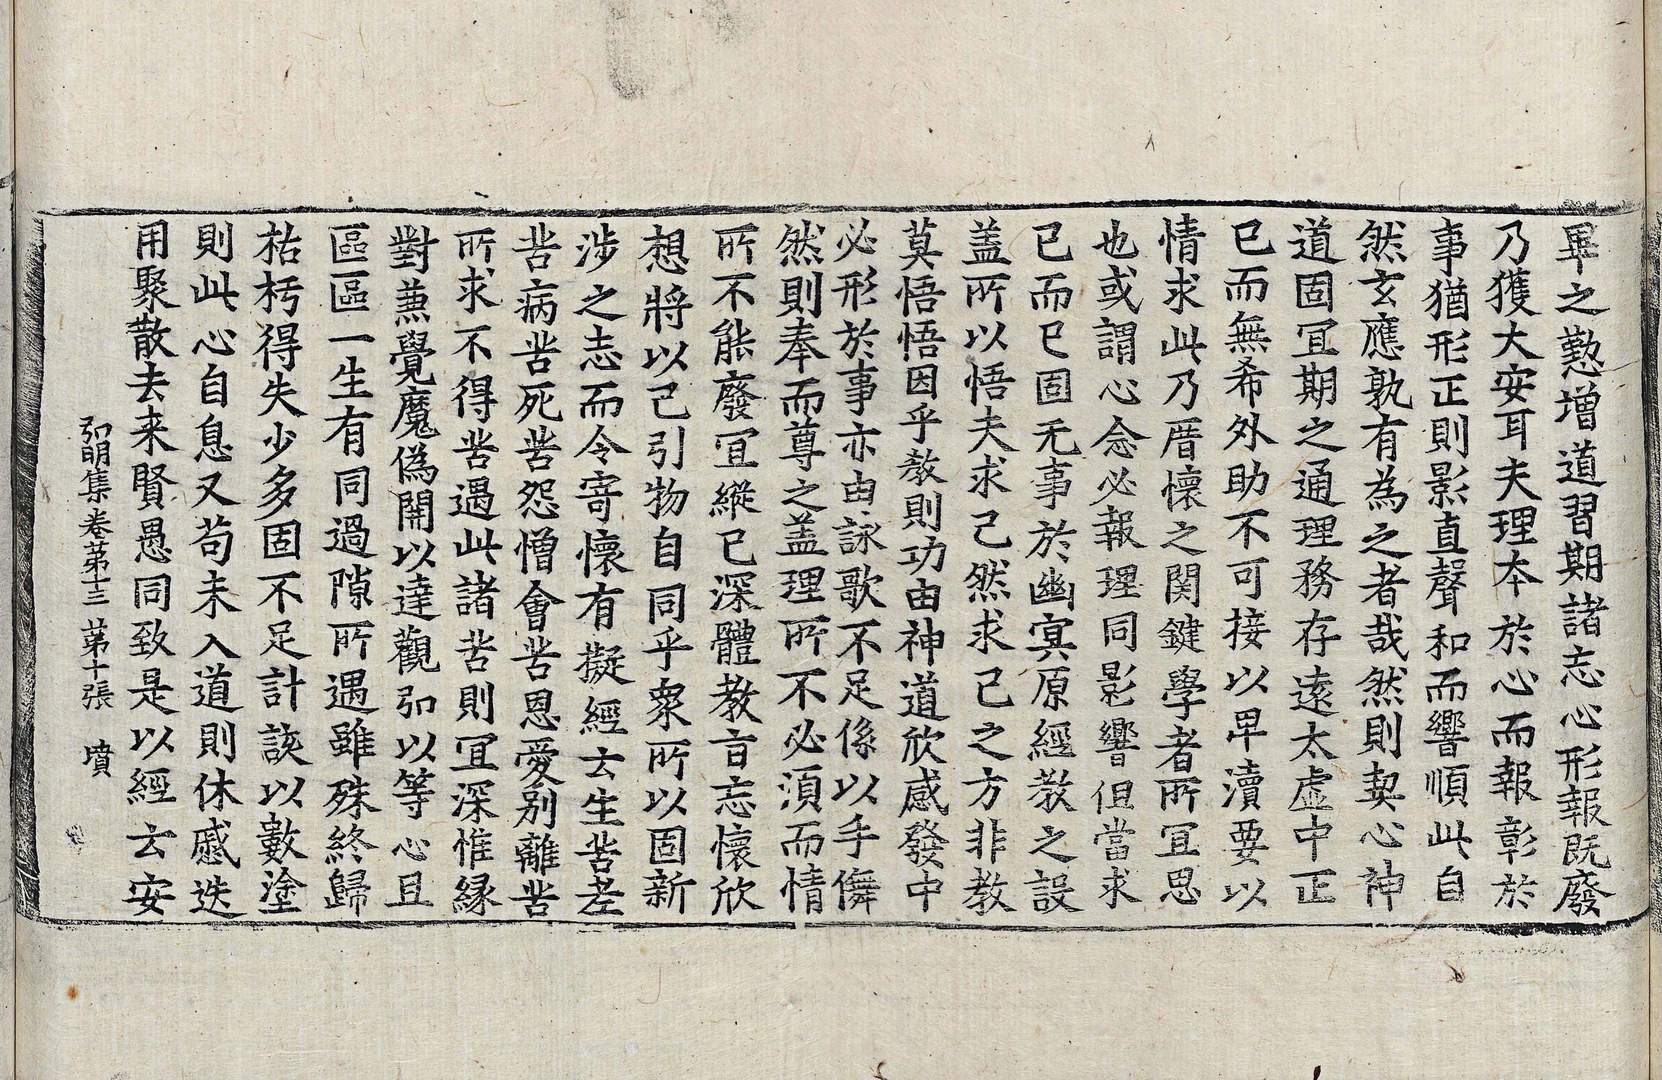 畢之懃增道習期諸忘心形報既廢
乃獲大安耳夫理本於心而報彰於
事猶形正則影直聲和而響順此自
然玄應孰有為之者哉然則契心神
道固冝期之通理務存遠太虛中正
已而無希外助不可接以卑瀆要以
情求此乃厝懷之関鍵學者所冝思
也或謂心念必報理同影響但當求
己而已固无事於幽冥原經教之設
盖所以悟夫求己然求己之方非教
莫悟悟因乎教則功由神道欣感發中
必形於事亦由詠歌不足係以手儛
然則奉而尊之盖理所不必湏而情
所不能廢冝縱已深體教旨忘懷欣
想將以己引物自同乎衆所以固新
涉之志而令寄懷有擬經云生苦老
苦病苦死苦怨憎會苦恩愛别離苦
所求不得苦遇此諸苦則冝深惟緣
對兼覺魔偽開以達觀弘以等心且
區區一生有同過隙所遇雖殊終歸
祜朽得失少多固不足計該以數塗
則此心自息又苟未入道則休慼迭
用聚散去来賢愚同致是以經云安
弘明集卷第十三　第十張　墳